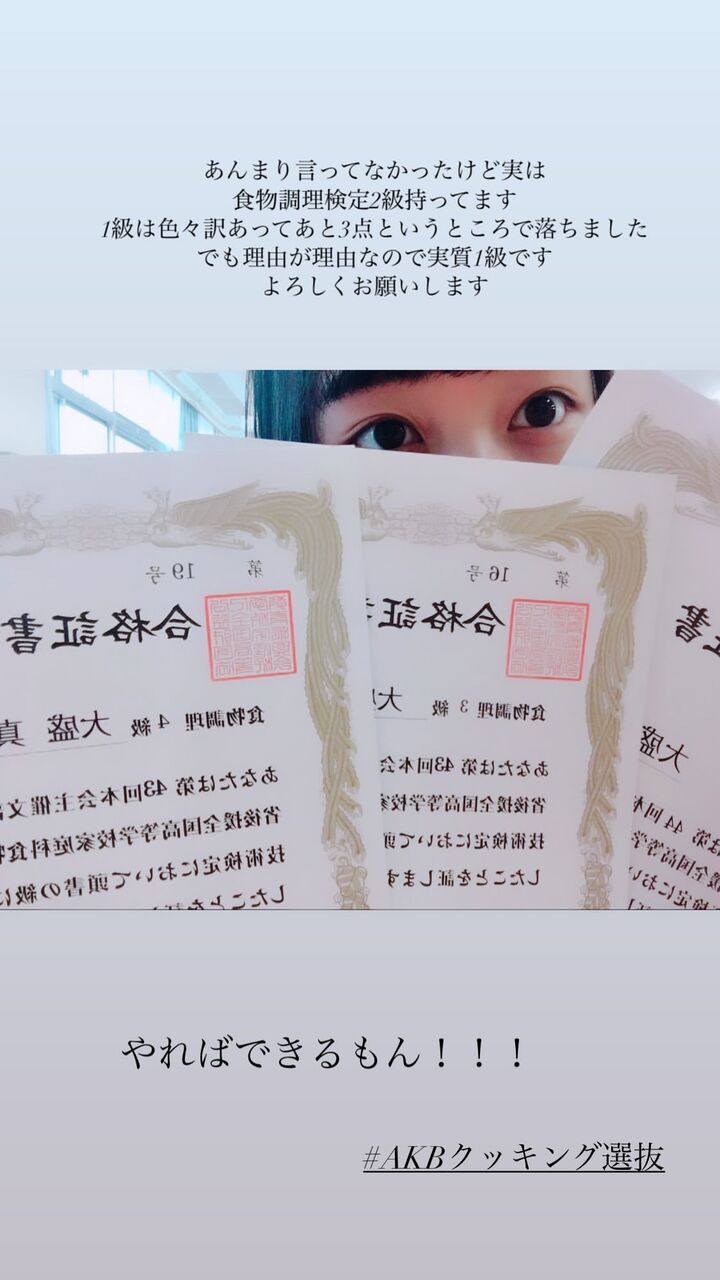 あんまり言ってなかったけど実は
食物調理検定2級持ってます
1級は色々訳あってあと3点というところで落ちました
でも理由が理由なので実質1級です
よろしくお願いします
第 19 号
合格証書
食物調理 4 級 大盛 真
あなたは第 43回本会主催文
省後援全国高等学校家庭科食
技術検定において頭書の級に
したことを証
第 16 号
合格証
食物調理 3 級 大
あなたは第 43回本会
省後援全国高等学校家
技術検定において頭
したことを証します
書
大盛
第 44 回本
全国高等学
検定におい
やればできるもん！！！
#AKBクッキング選抜